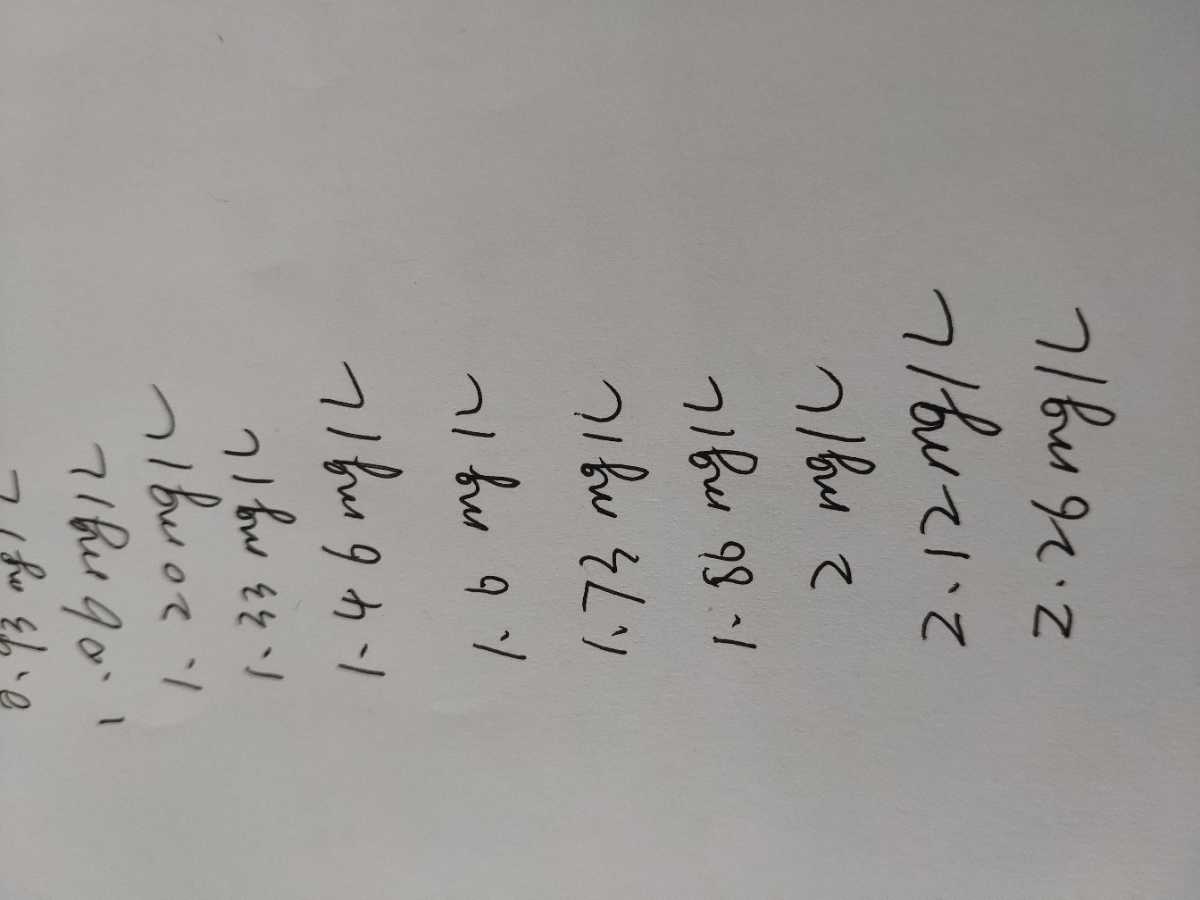 0.93 mg/L
1.06 mg/L
1.20 mg/L
1.33 mg/L
1.46 mg/L
1.6 mg/L
1.73 mg/L
1.86 mg/L
2 mg/L
2.12 mg/L
2.26 mg/L